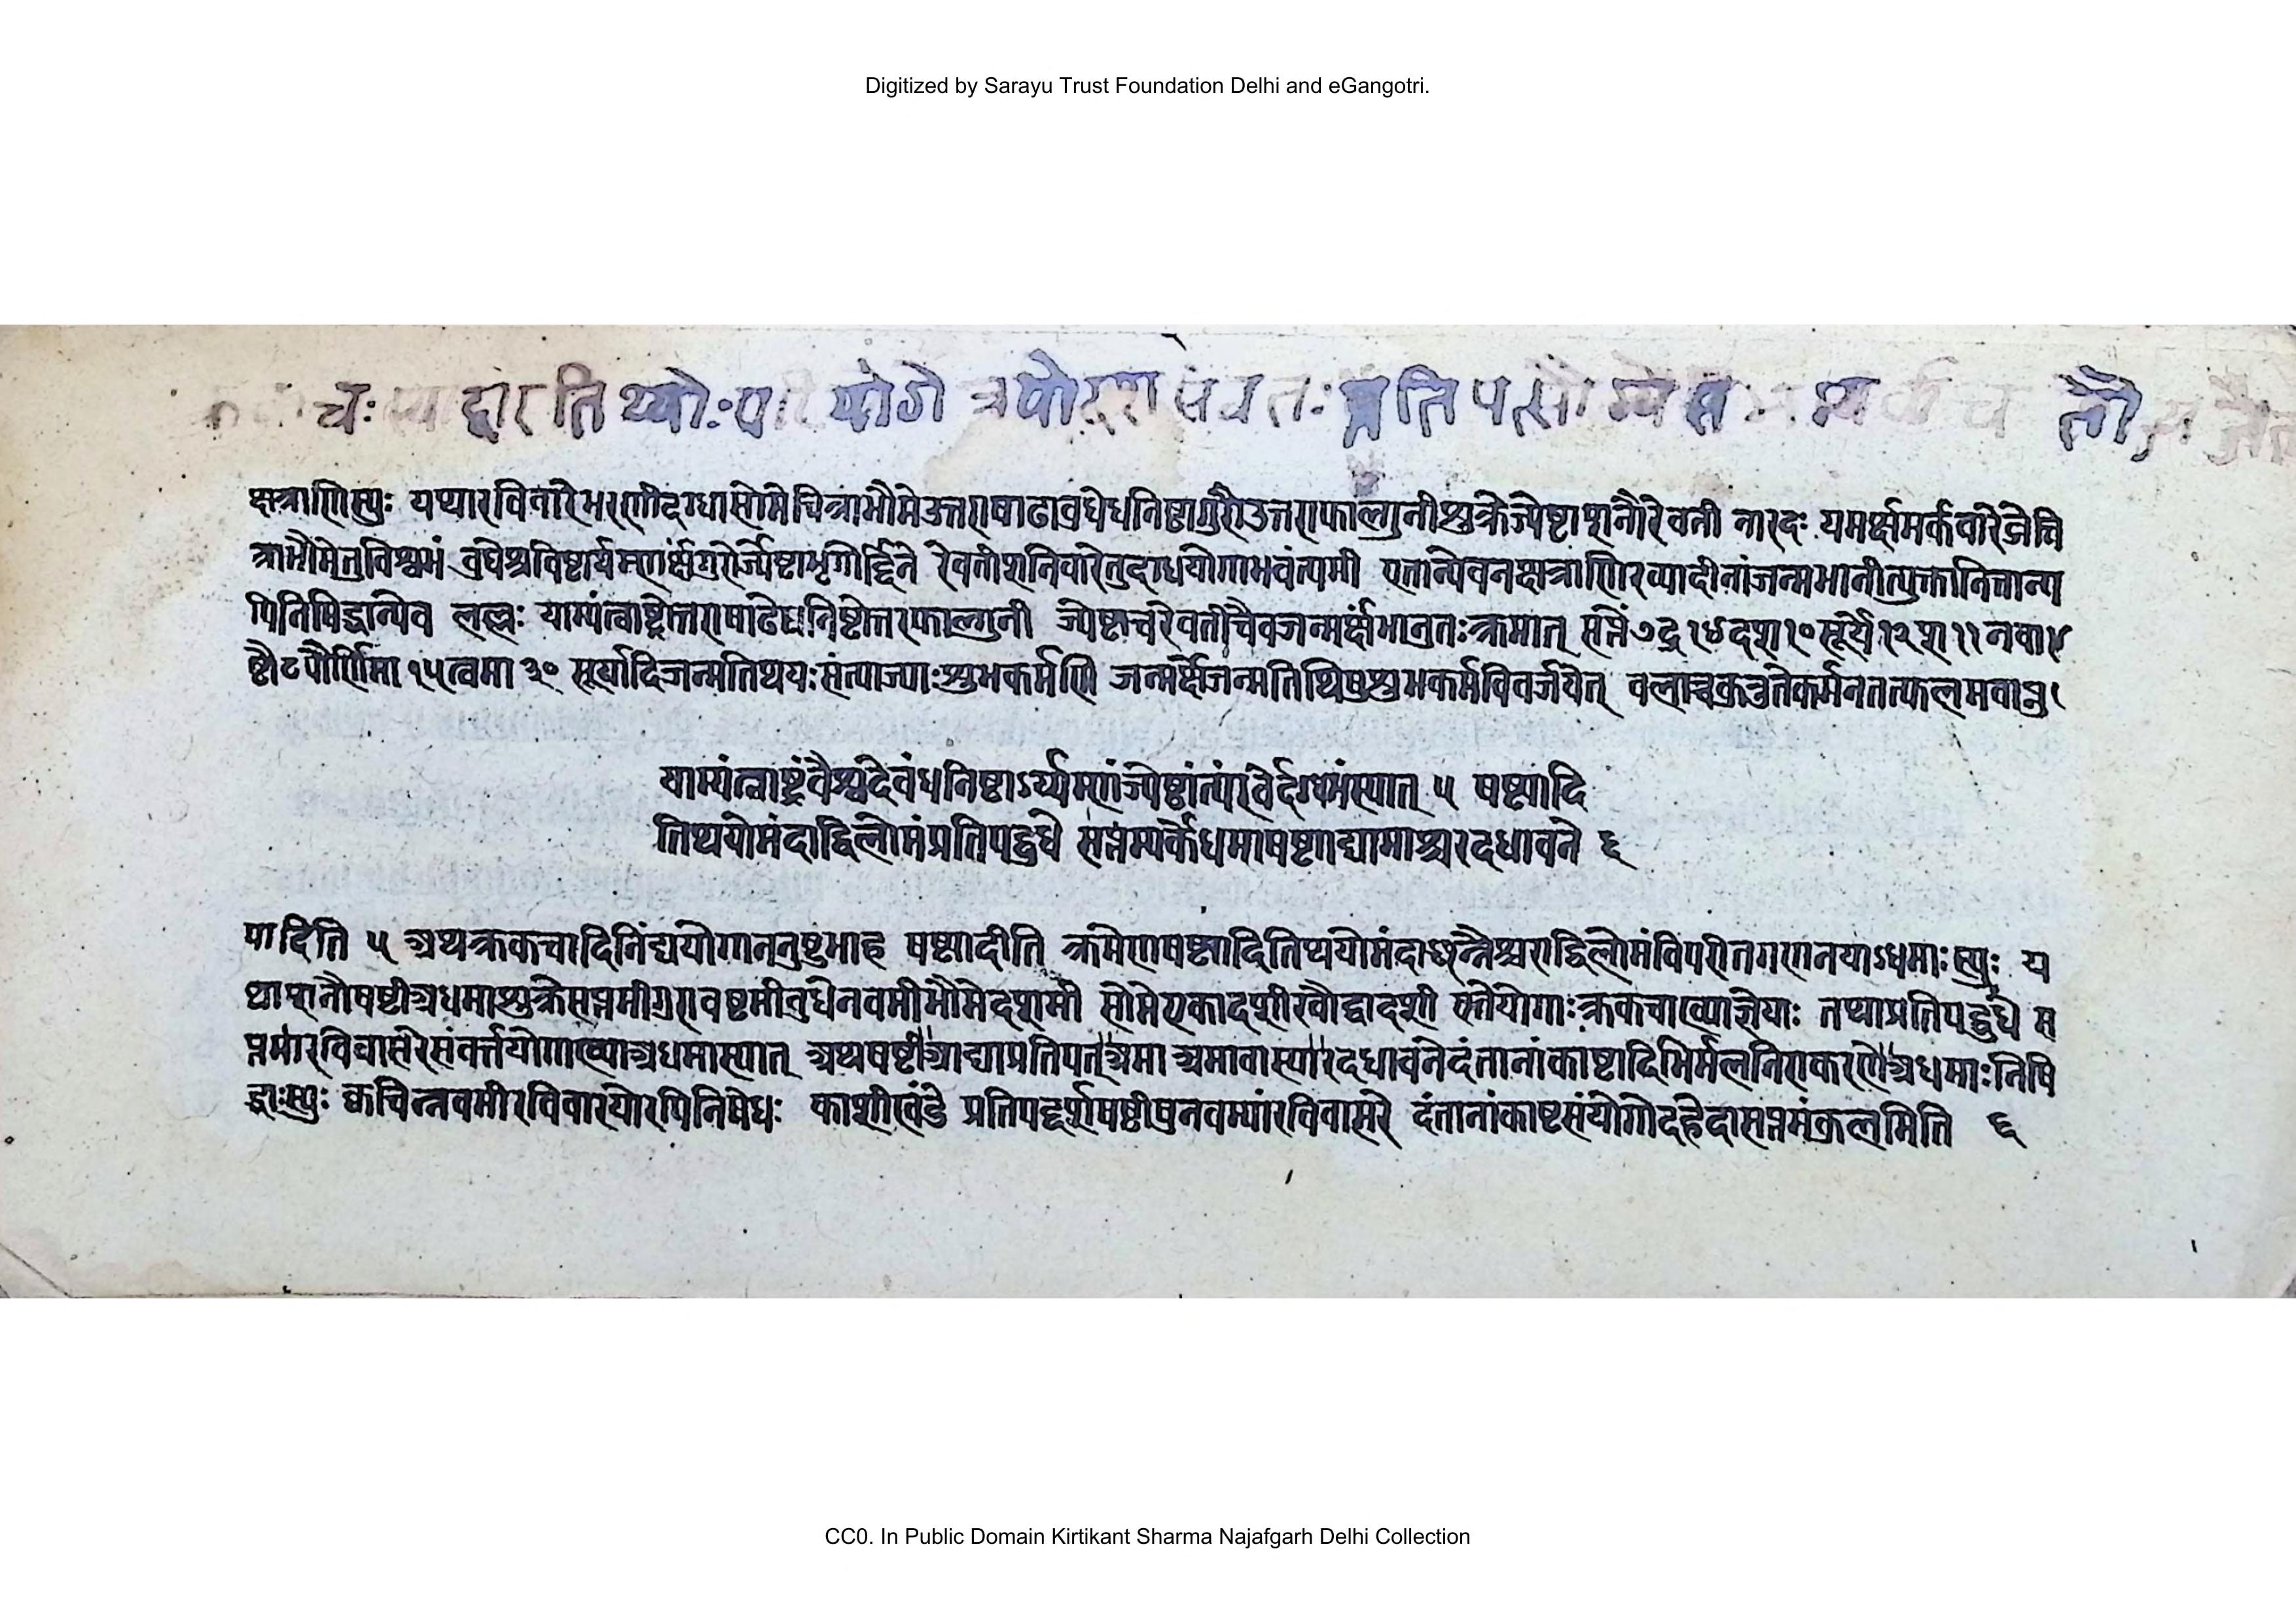 Digitized by Sarayu Trust Foundation Delhi and eGangotri.
द्वारतिथ्योः योगे
क्षत्राणिस्युः यथारविवारेभरणीदग्धासोमेचित्राभौमेउत्तराषाढाबुधेधनिष्टागुरौउत्तराफाल्गुनीशुक्रेज्येष्टाशनौरेवती नारदः यमर्क्षमर्कवारेब्जेचि
त्राभौमेतुविश्वभं बुधेश्रविष्टार्यमर्णर्क्षंगुरोर्ज्येष्टाभृगोर्द्दिने रेवतीशनिवारेतुदग्धयोगाभवंत्यमी एतान्येवनक्षत्राणिरव्यादीनांजन्मभानीत्युक्तानितान्य
पिनिषिद्धान्येव लल्लः याम्यंत्वाष्ट्रोत्तराषाढेधनिष्टोत्तरफाल्गुनी ज्येष्टाचरेवतीचैवजन्मर्क्षंभानुतःक्रमात् सप्तें७द्र१४दश१०सूर्ये१२श११नवा९
ष्टौ८पौर्णिमा१५त्वमा३० सूर्यादिजन्मतिथयःसंत्याज्याःशुभकर्मणि जन्मर्क्षेजन्मतिथिषुशुभकर्मविवर्जयेत् बलाच्चक्रनुतेकर्मनतत्फलमवाप्नु
याम्यंत्वाष्ट्रंवैश्वदेवंधनिष्टाऽर्य्यम्णंज्येष्ठांत्यंरवेर्दग्धभंस्यात् ५ षष्ट्यादि
तिथयोमंदाद्विलोमंप्रतिपद्बुधे सप्तम्यर्केधमाषष्ट्याद्यामाश्चरदधावने ६
यादिति ५ अथक्रकचादिनिंद्ययोगाननुष्टुभाह षष्ट्यादीति क्रमेणषष्ट्यादितिथयोमंदाछन्नैश्चराद्विलोमंविपरीतगणनयाऽधमाःस्युः य
थाशनौषष्टीअधमाशुक्रेसप्तमीगुरावष्टमीबुधेनवमीभौमेदशमी सोमेएकादशीरवौद्वादशी एतेयोगाःक्रकचाख्याज्ञेयाः तथाप्रतिपद्बुधे स
प्तमीरविवासरेसंवर्त्तयोगाख्याअधमास्यात् अथषष्टीआद्याप्रतिपत्अमा अमावास्यारदधावनेदंतानांकाष्टादिभिर्मलनिराकरणेअधमाःनिषि
द्धाःस्युः क्वचिन्नवमीरविवारयोरपिनिषेधः काशीखंडे प्रतिपद्दर्शषष्टीषुनवम्यांरविवासरे दंतानांकाष्टसंयोगोदहेदासप्तमंकुलमिति ६
CC0. In Public Domain Kirtikant Sharma Najafgarh Delhi Collection